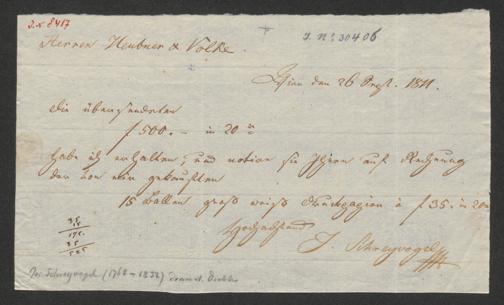 J.N. 8417
J. N: 30406
Herren Heubner & Volke.
Wien den 26 Sept. 1811.
Die übersendeten
f 500. – in 20 ir
habe ich erhalten; und notire sie Ihnen auf Rechnung
der von mir gekauften
15 Ballen groß weiß Druckpapier à f 35. in 20
Hochachtend
J. Schreyvogel
35
15
175
35
525
Jos. Schreyvogel (1768 – 1832) dramat. Dichter